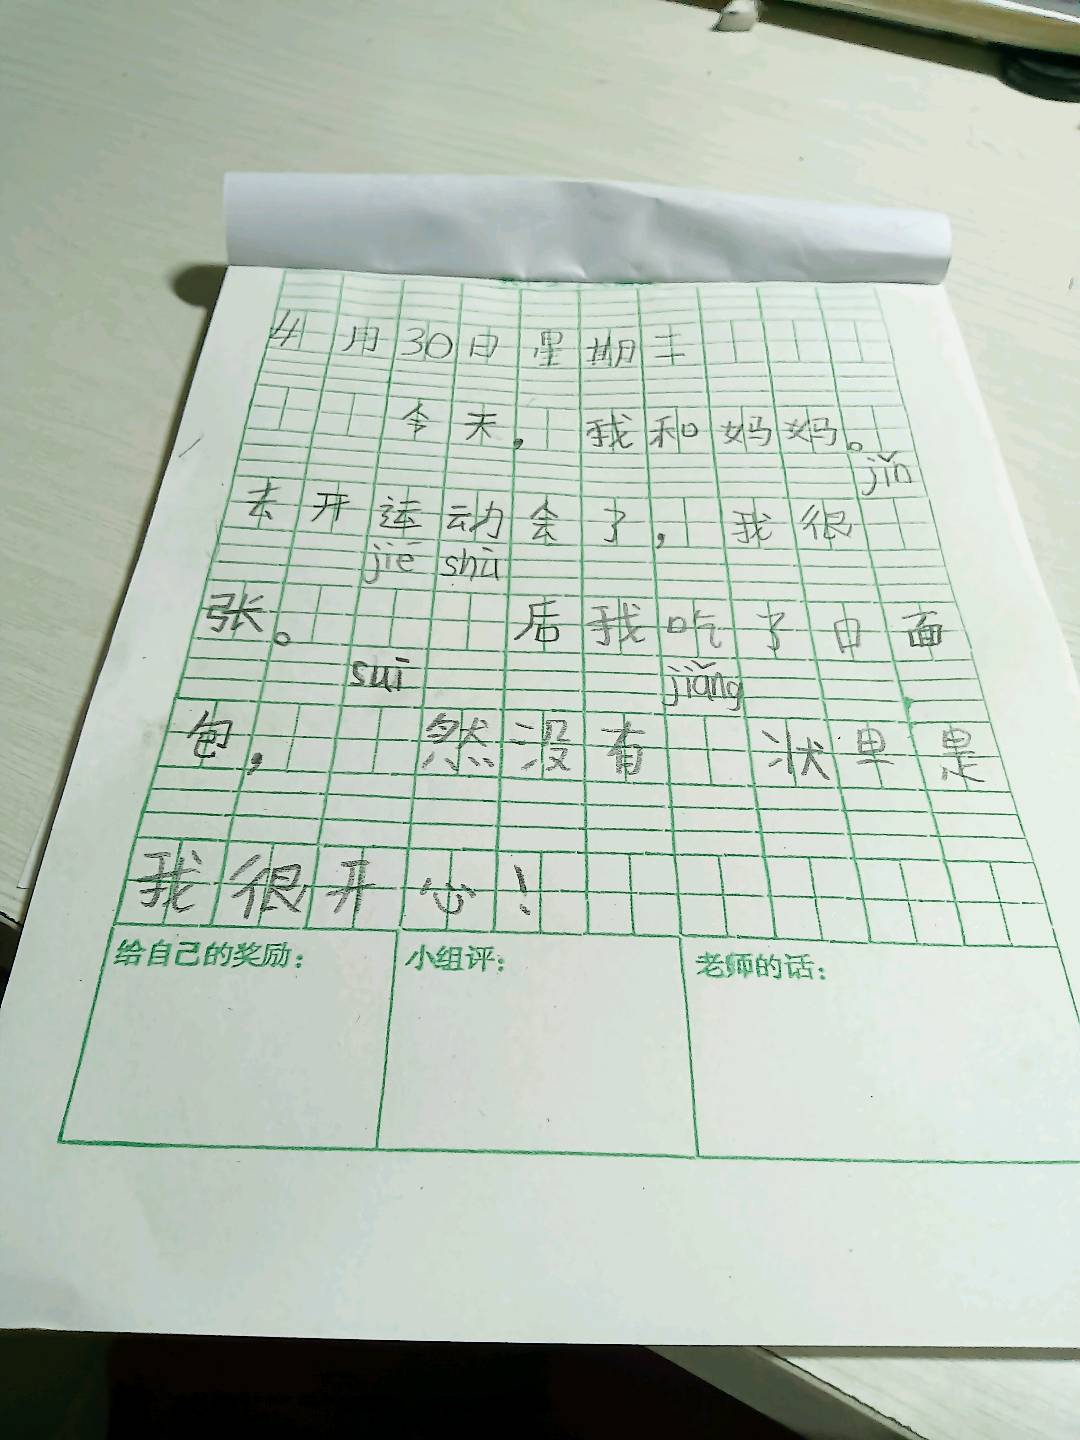 4月30日星期
今天，我和妈妈。
jǐn
去开运动会了，我很
jié shù
张。后我吃了白面
suī jiǎng
包，然没有状里是
我很开心！
给自己的奖励： 小组评： 老师的话：